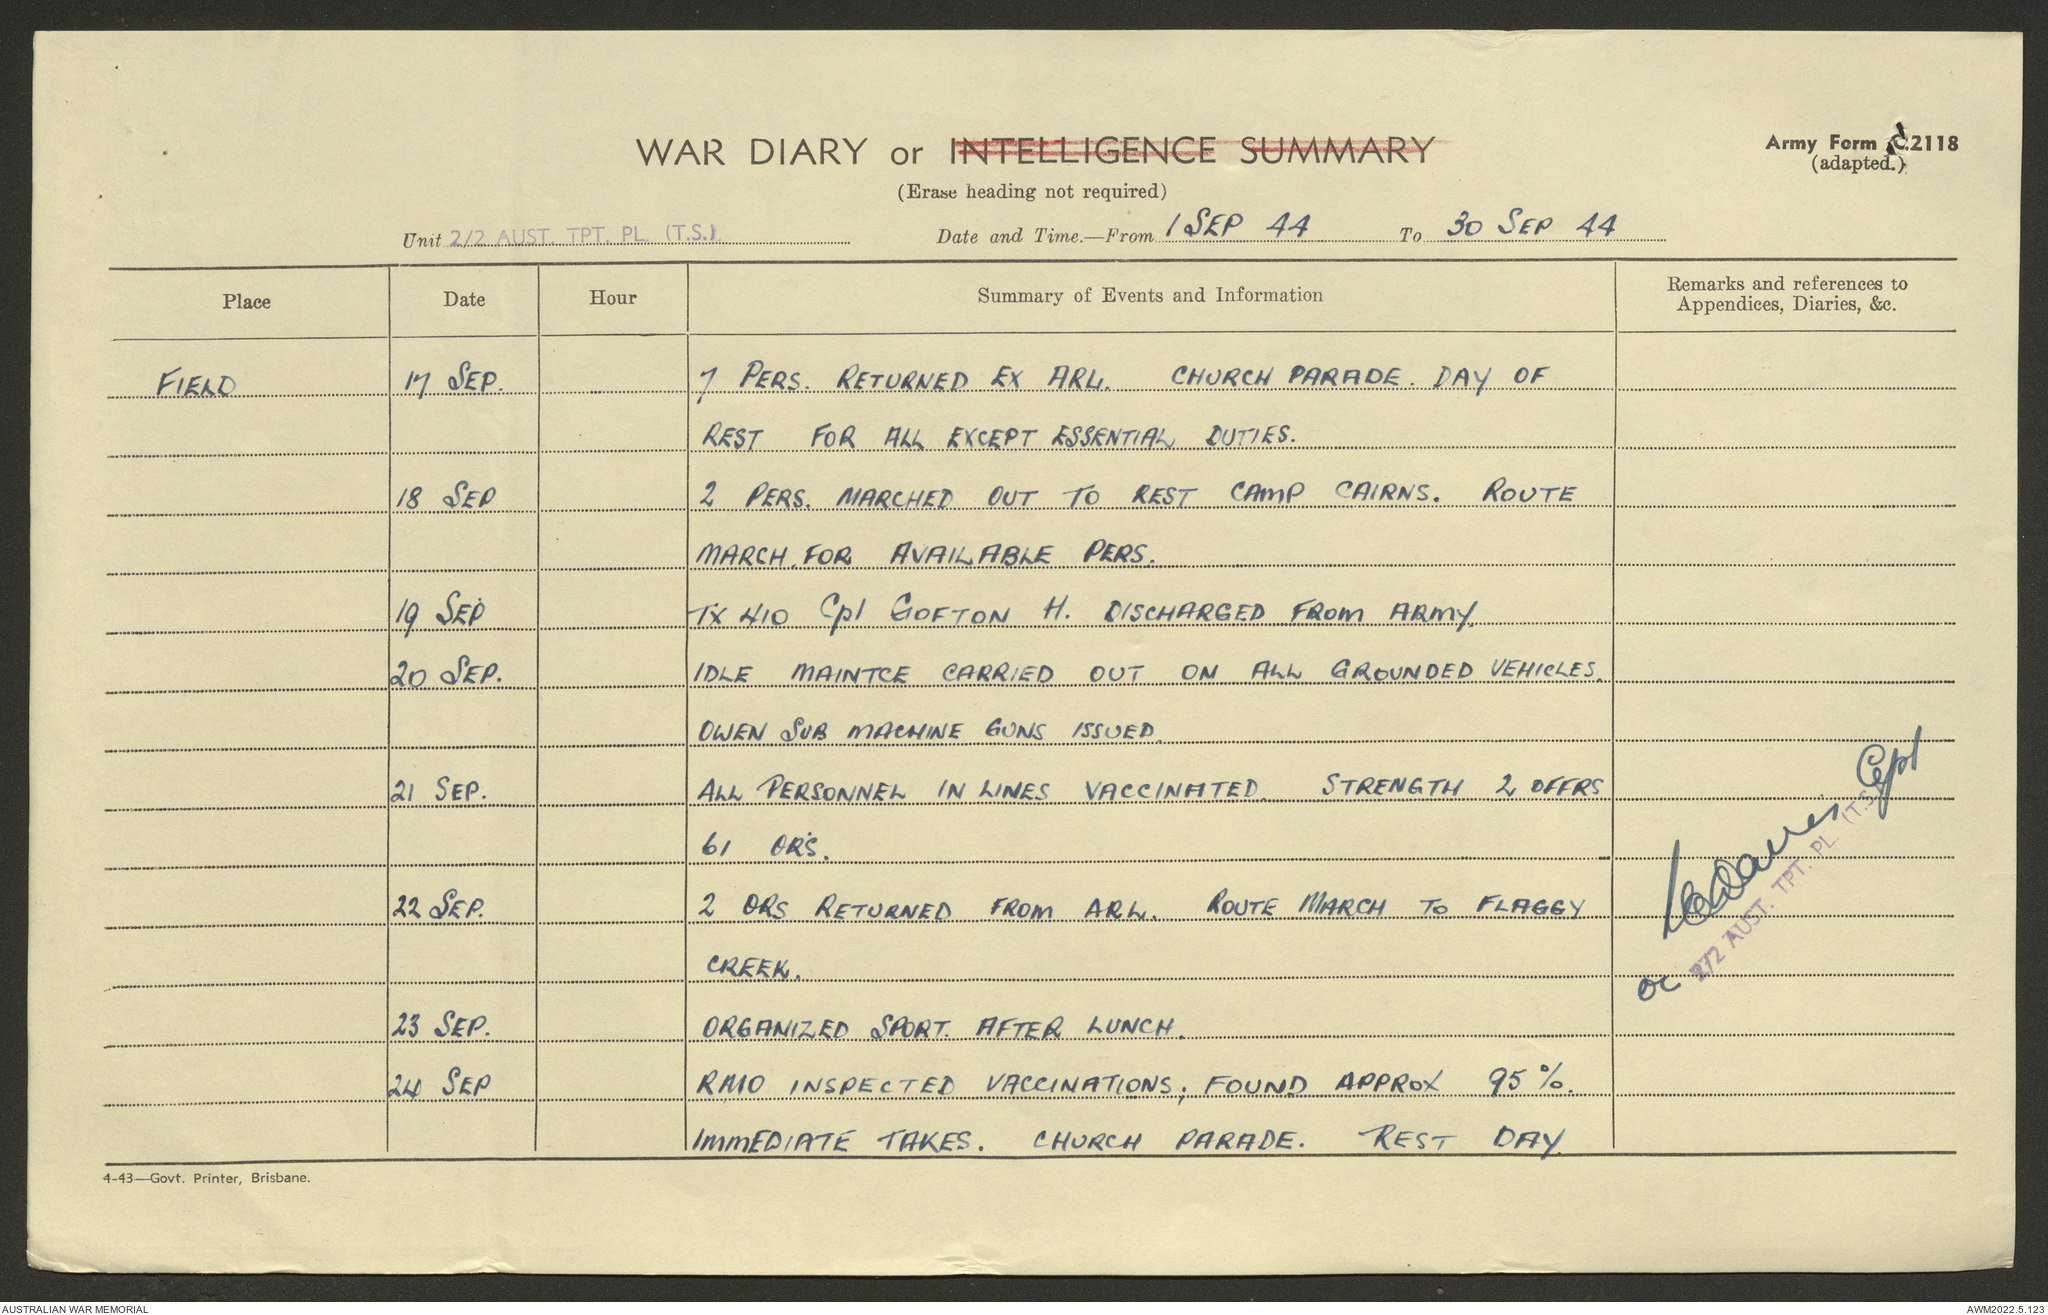 WAR DIARY or INTELLIGENCE SUMMARY
(Erase heading not required)
Army Form C.2118
(adapted.)
Unit 2/2 AUST. TPT. PL. (T.S.). Date and Time.—From 1 SEP 44 To 30 SEP 44
Place Date Hour Summary of Events and Information Remarks and references to
Appendices, Diaries, &c.
FIELD 17 SEP. 7 PERS. RETURNED EX ARL. CHURCH PARADE. DAY OF
REST FOR ALL EXCEPT ESSENTIAL DUTIES.
18 SEP 2 PERS. MARCHED OUT TO REST CAMP CAIRNS. ROUTE
MARCH FOR AVAILABLE PERS.
19 SEP TX 410 Cpl GOFTON H. DISCHARGED FROM ARMY.
20 SEP. IDLE MAINTCE CARRIED OUT ON ALL GROUNDED VEHICLES.
OWEN SUB MACHINE GUNS ISSUED.
21 SEP. ALL PERSONNEL IN LINES VACCINATED. STRENGTH 2 OFFRS
61 ORS.
22 SEP. 2 ORS RETURNED FROM ARL. ROUTE MARCH TO FLAGGY
CREEK.
23 SEP. ORGANIZED SPORT. AFTER LUNCH.
24 SEP RMO INSPECTED VACCINATIONS; FOUND APPROX 95%.
IMMEDIATE TAKES. CHURCH PARADE. REST DAY.
Capt
OC 2/2 AUST. TPT. PL. (T.S.)
4-43—Govt. Printer, Brisbane.
AUSTRALIAN WAR MEMORIAL
AWM2022.5.123